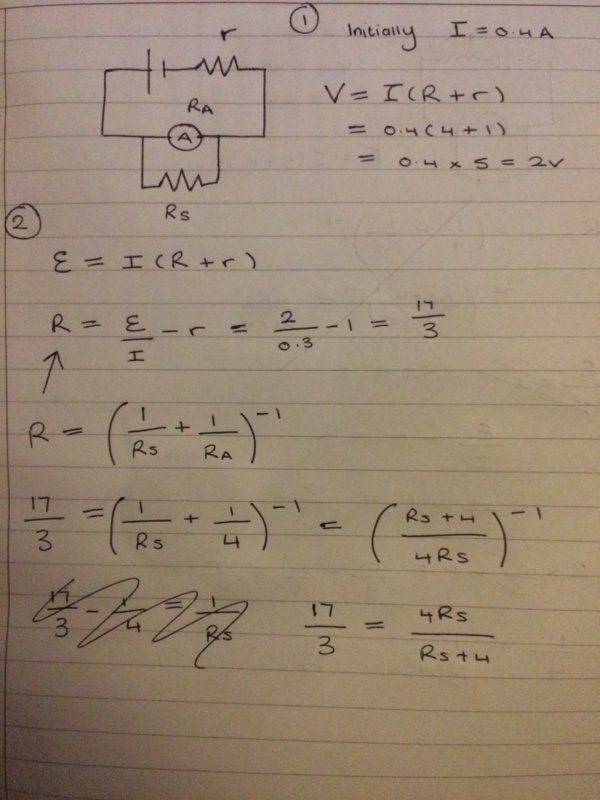 ① Initially I = 0.4A
r
RA
A
Rs
V = I(R+r)
= 0.4(4+1)
= 0.4 × 5 = 2v
②
ε = I(R+r)
R = ε/I - r = 2/0.3 - 1 = 17/3
R = (1/Rs + 1/RA)^-1
17/3 = (1/Rs + 1/4)^-1 = (Rs+4/4Rs)^-1
17/3 - 1/4 = 1/Rs
17/3 = 4Rs/Rs+4